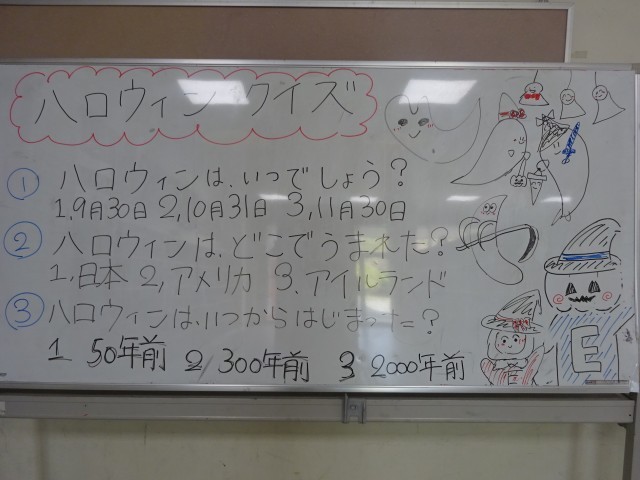 ハロウィンクイズ
① ハロウィンは、いつでしょう?
1,9月30日 2,10月31日 3,11月30日
② ハロウィンは、どこでうまれた?
1,日本 2,アメリカ 3.アイルランド
③ ハロウィンは、いつからはじまった?
1 50年前 2 300年前 3 2000年前
E